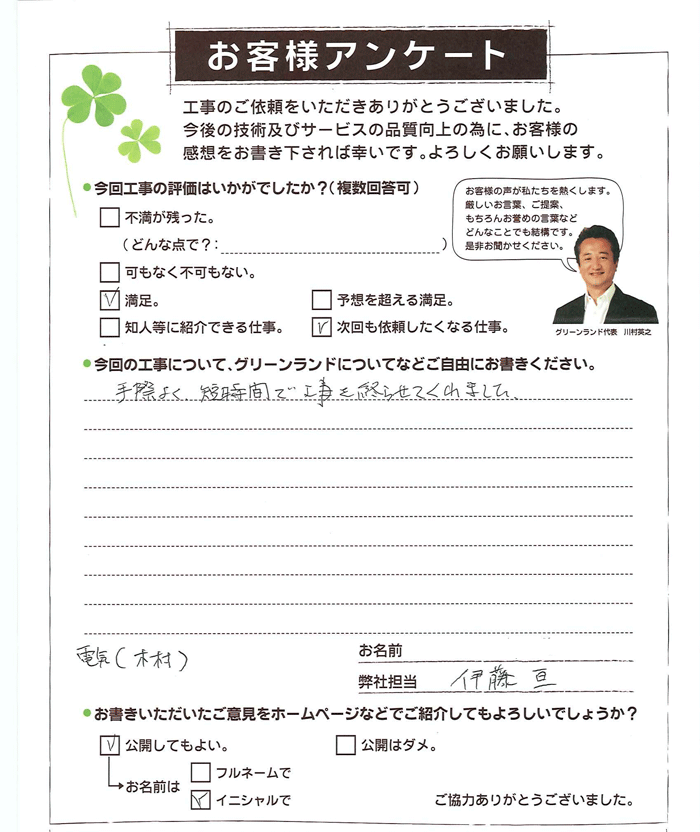 お客様アンケート
工事のご依頼をいただきありがとうございました。
今後の技術及びサービスの品質向上の為に、お客様の
感想をお書き下されば幸いです。よろしくお願いします。
●今回工事の評価はいかがでしたか？（複数回答可）
不満が残った。
（どんな点で？：）
可もなく不可もない。
満足。
予想を超える満足。
知人等に紹介できる仕事。
次回も依頼したくなる仕事。
お客様の声が私たちを熱くします。
厳しいお言葉、ご提案、
もちろんお誉めの言葉など
どんなことでも結構です。
是非お聞かせください。
グリーンランド代表 川村英之
●今回の工事について、グリーンランドについてなどご自由にお書きください。
手際よく、短時間で工事を終らせてくれました、
電気（木村）
お名前
弊社担当 伊藤 亘
●お書きいただいたご意見をホームページなどでご紹介してもよろしいでしょうか？
公開してもよい。
公開はダメ。
お名前は
フルネームで
イニシャルで
ご協力ありがとうございました。